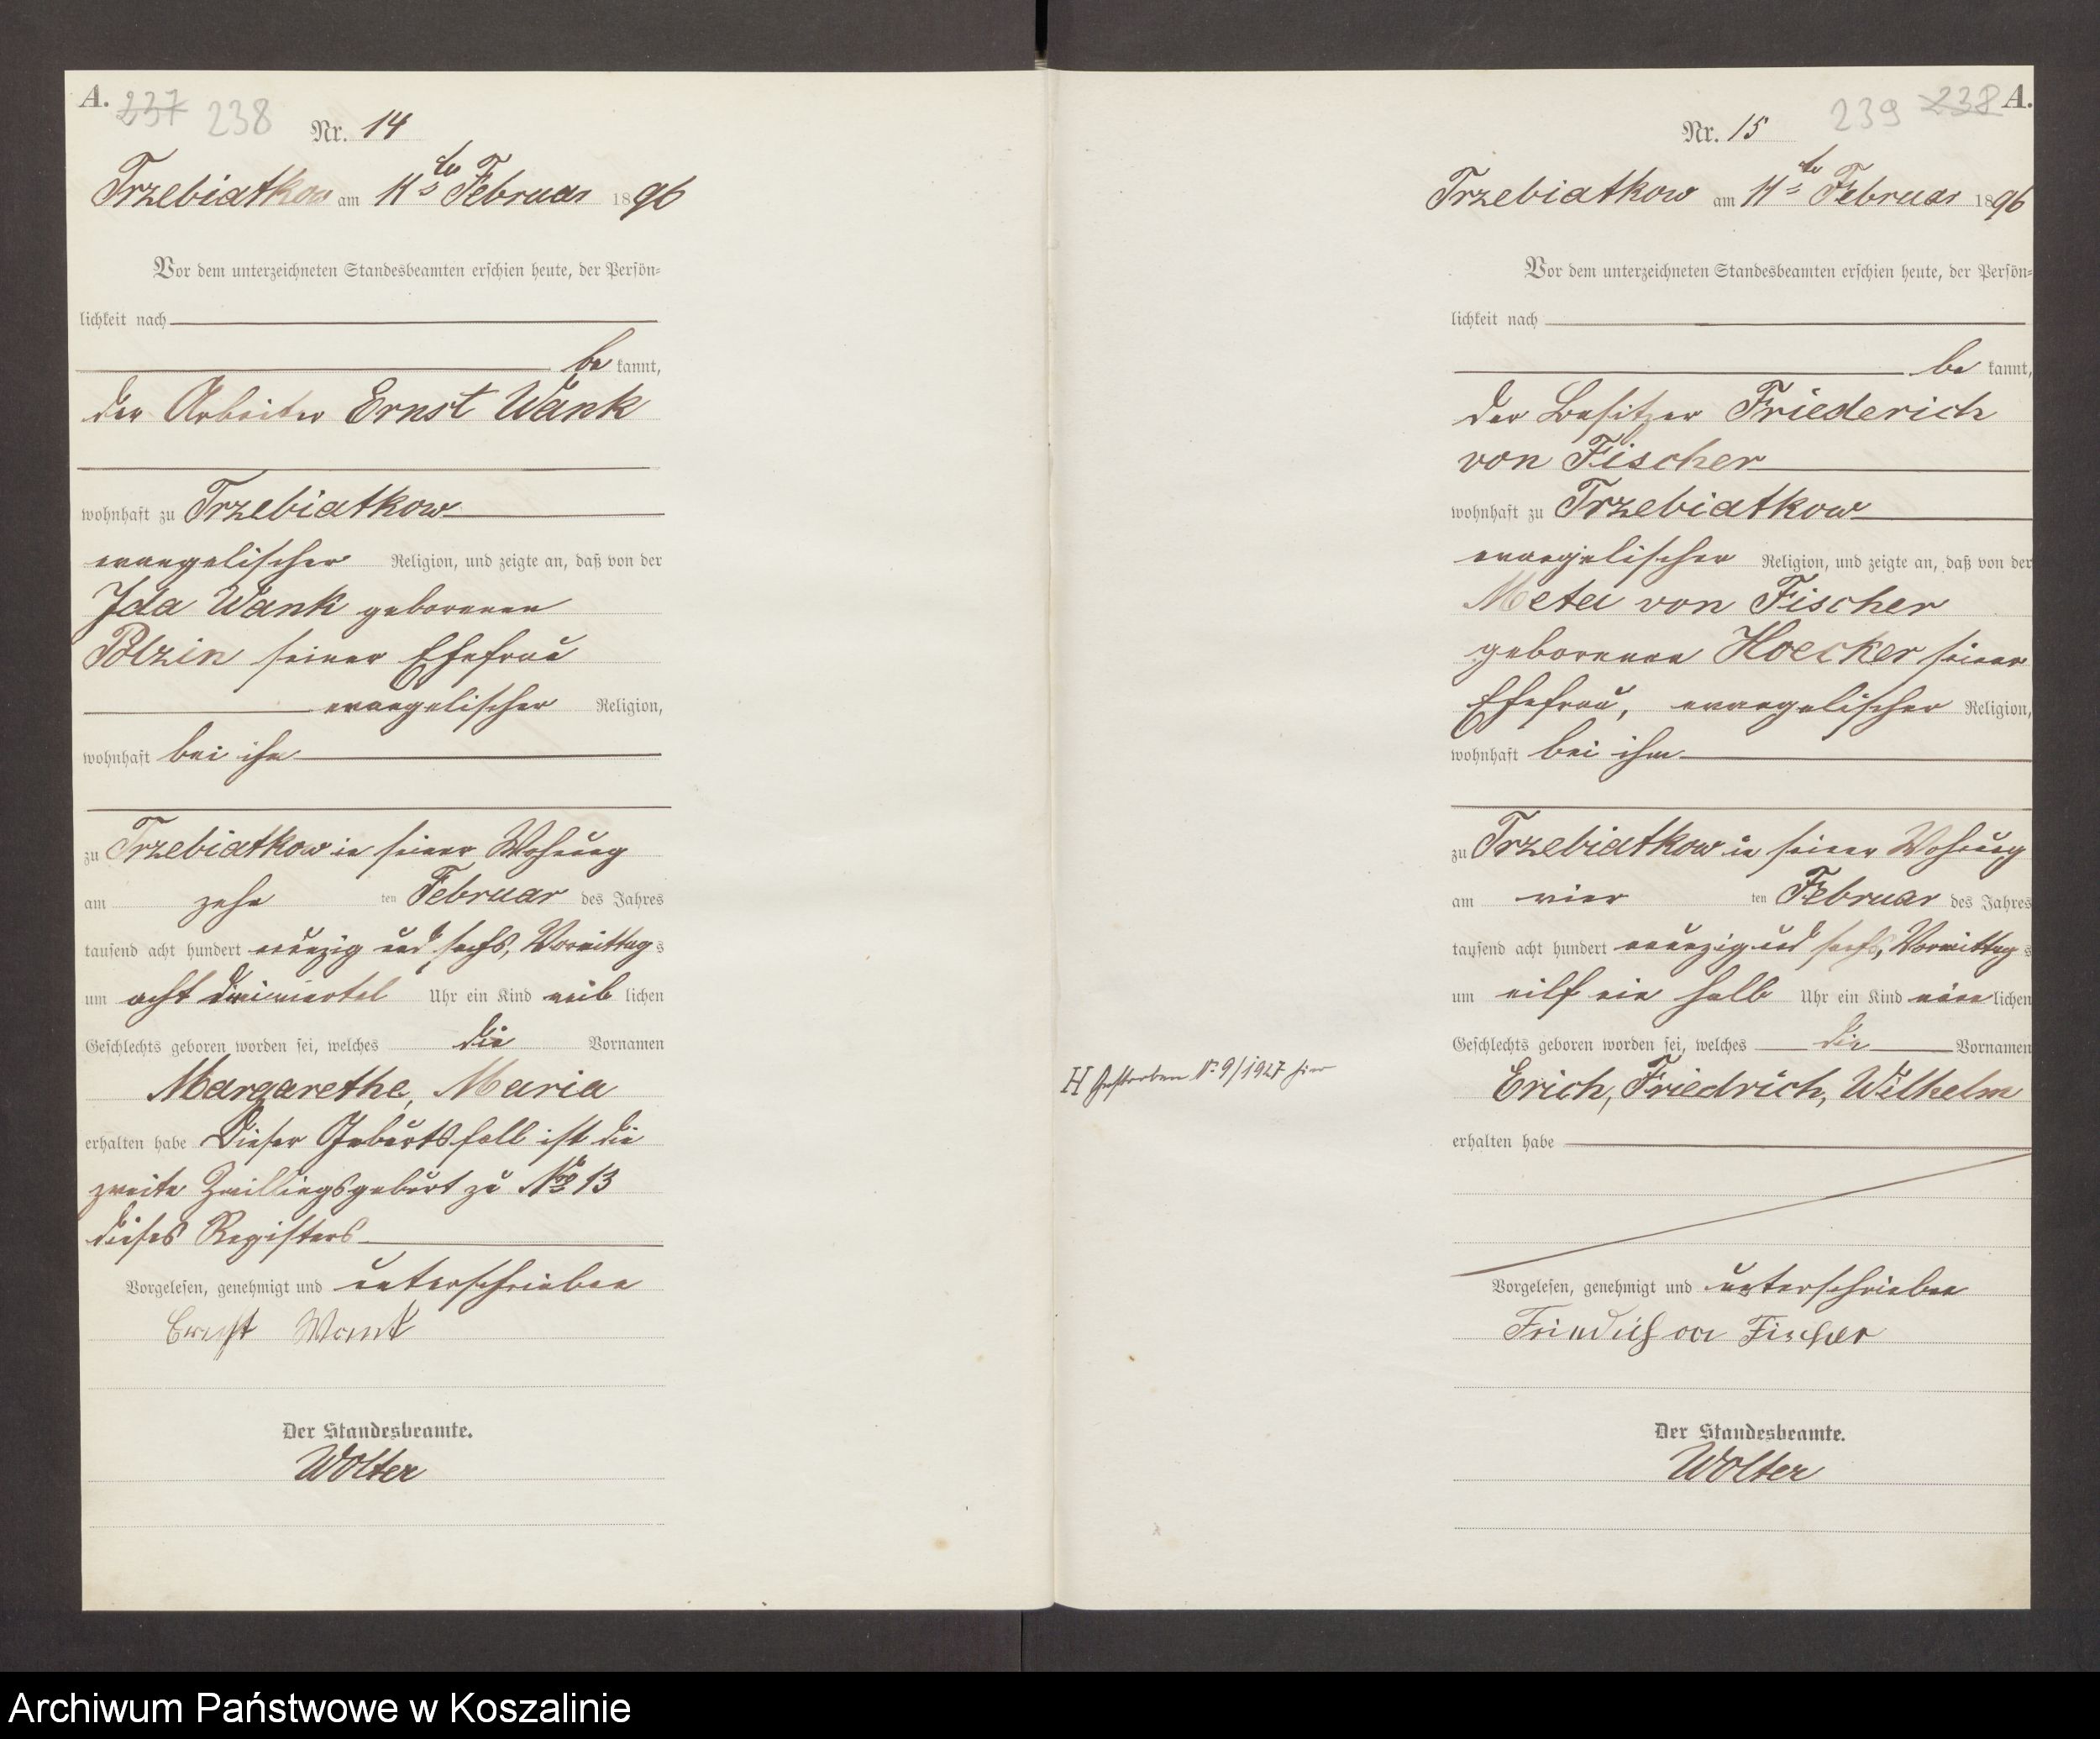 A. 237 238
Nr. 14
Trzebiatkow am 11ten Februar 1896
Vor dem unterzeichneten Standesbeamten erschien heute, der Persön-
lichkeit nach
be kannt,
der Arbeiter Ernst Wank
wohnhaft zu Trzebiatkow
evangelischer Religion, und zeigte an, daß von der
Ida Wank geborenen
Polzin seiner Ehefrau
evangelischer Religion,
wohnhaft bei ihm
zu Trzebiatkow in seiner Wohnung
am zehn ten Februar des Jahres
tausend acht hundert neunzig und sechs, Vormittags
um acht dreiviertel Uhr ein Kind weib lichen
Geschlechts geboren worden sei, welches die Vornamen
Margarethe, Maria
erhalten habe Dieser Geburtsfall ist die
zweite Zwillingsgeburt zu No 13
dieses Registers
Vorgelesen, genehmigt und unterschrieben
Ernst Wank
Der Standesbeamte.
Wolter
239 238 A.
Nr. 15
Trzebiatkow am 11ten Februar 1896
Vor dem unterzeichneten Standesbeamten erschien heute, der Persön-
lichkeit nach
be kannt,
der Besitzer Friederich
von Fischer
wohnhaft zu Trzebiatkow
evangelischer Religion, und zeigte an, daß von der
Meta von Fischer
geborenen Hoecker seiner
Ehefrau, evangelischer Religion,
wohnhaft bei ihm
zu Trzebiatkow in seiner Wohnung
am vier ten Februar des Jahres
tausend acht hundert neunzig und sechs, Vormittags
um eilf ein halb Uhr ein Kind männlichen
Geschlechts geboren worden sei, welches die Vornamen
H Gestorben Nr. 9/1927 hier
Erich, Friedrich, Wilhelm
erhalten habe
Vorgelesen, genehmigt und unterschrieben
Friedrich von Fischer
Der Standesbeamte.
Wolter
Archiwum Państwowe w Koszalinie